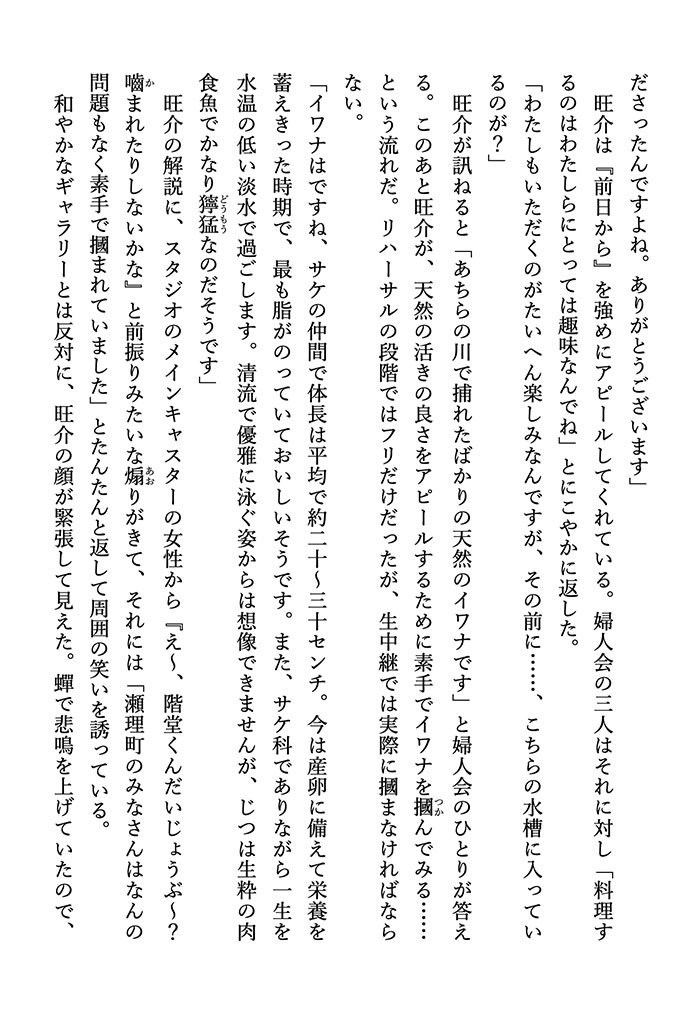 ださったんですよね。ありがとうございます」
　旺介は『前日から』を強めにアピールしてくれている。婦人会の三人はそれに対し「料理す
るのはわたしらにとっては趣味なんでね」とにこやかに返した。
「わたしもいただくのがたいへん楽しみなんですが、その前に……、こちらの水槽に入ってい
るのが？」
　旺介が訊ねると「あちらの川で捕れたばかりの天然のイワナです」と婦人会のひとりが答え
る。このあと旺介が、天然の活きの良さをアピールするために素手でイワナを摑んでみる……
という流れだ。リハーサルの段階ではフリだけだったが、生中継では実際に摑まなければなら
ない。
「イワナはですね、サケの仲間で体長は平均で約二十〜三十センチ。今は産卵に備えて栄養を
蓄えきった時期で、最も脂がのっていておいしいそうです。また、サケ科でありながら一生を
水温の低い淡水で過ごします。清流で優雅に泳ぐ姿からは想像できませんが、じつは生粋の肉
食魚でかなり獰猛なのだそうです」
　旺介の解説に、スタジオのメインキャスターの女性から『え〜、階堂くんだいじょうぶ〜？
嚙まれたりしないかな』と前振りみたいな煽りがきて、それには「瀬理町のみなさんはなんの
問題もなく素手で摑まれていました」とたんたんと返して周囲の笑いを誘っている。
　和やかなギャラリーとは反対に、旺介の顔が緊張して見えた。蟬で悲鳴を上げていたので、